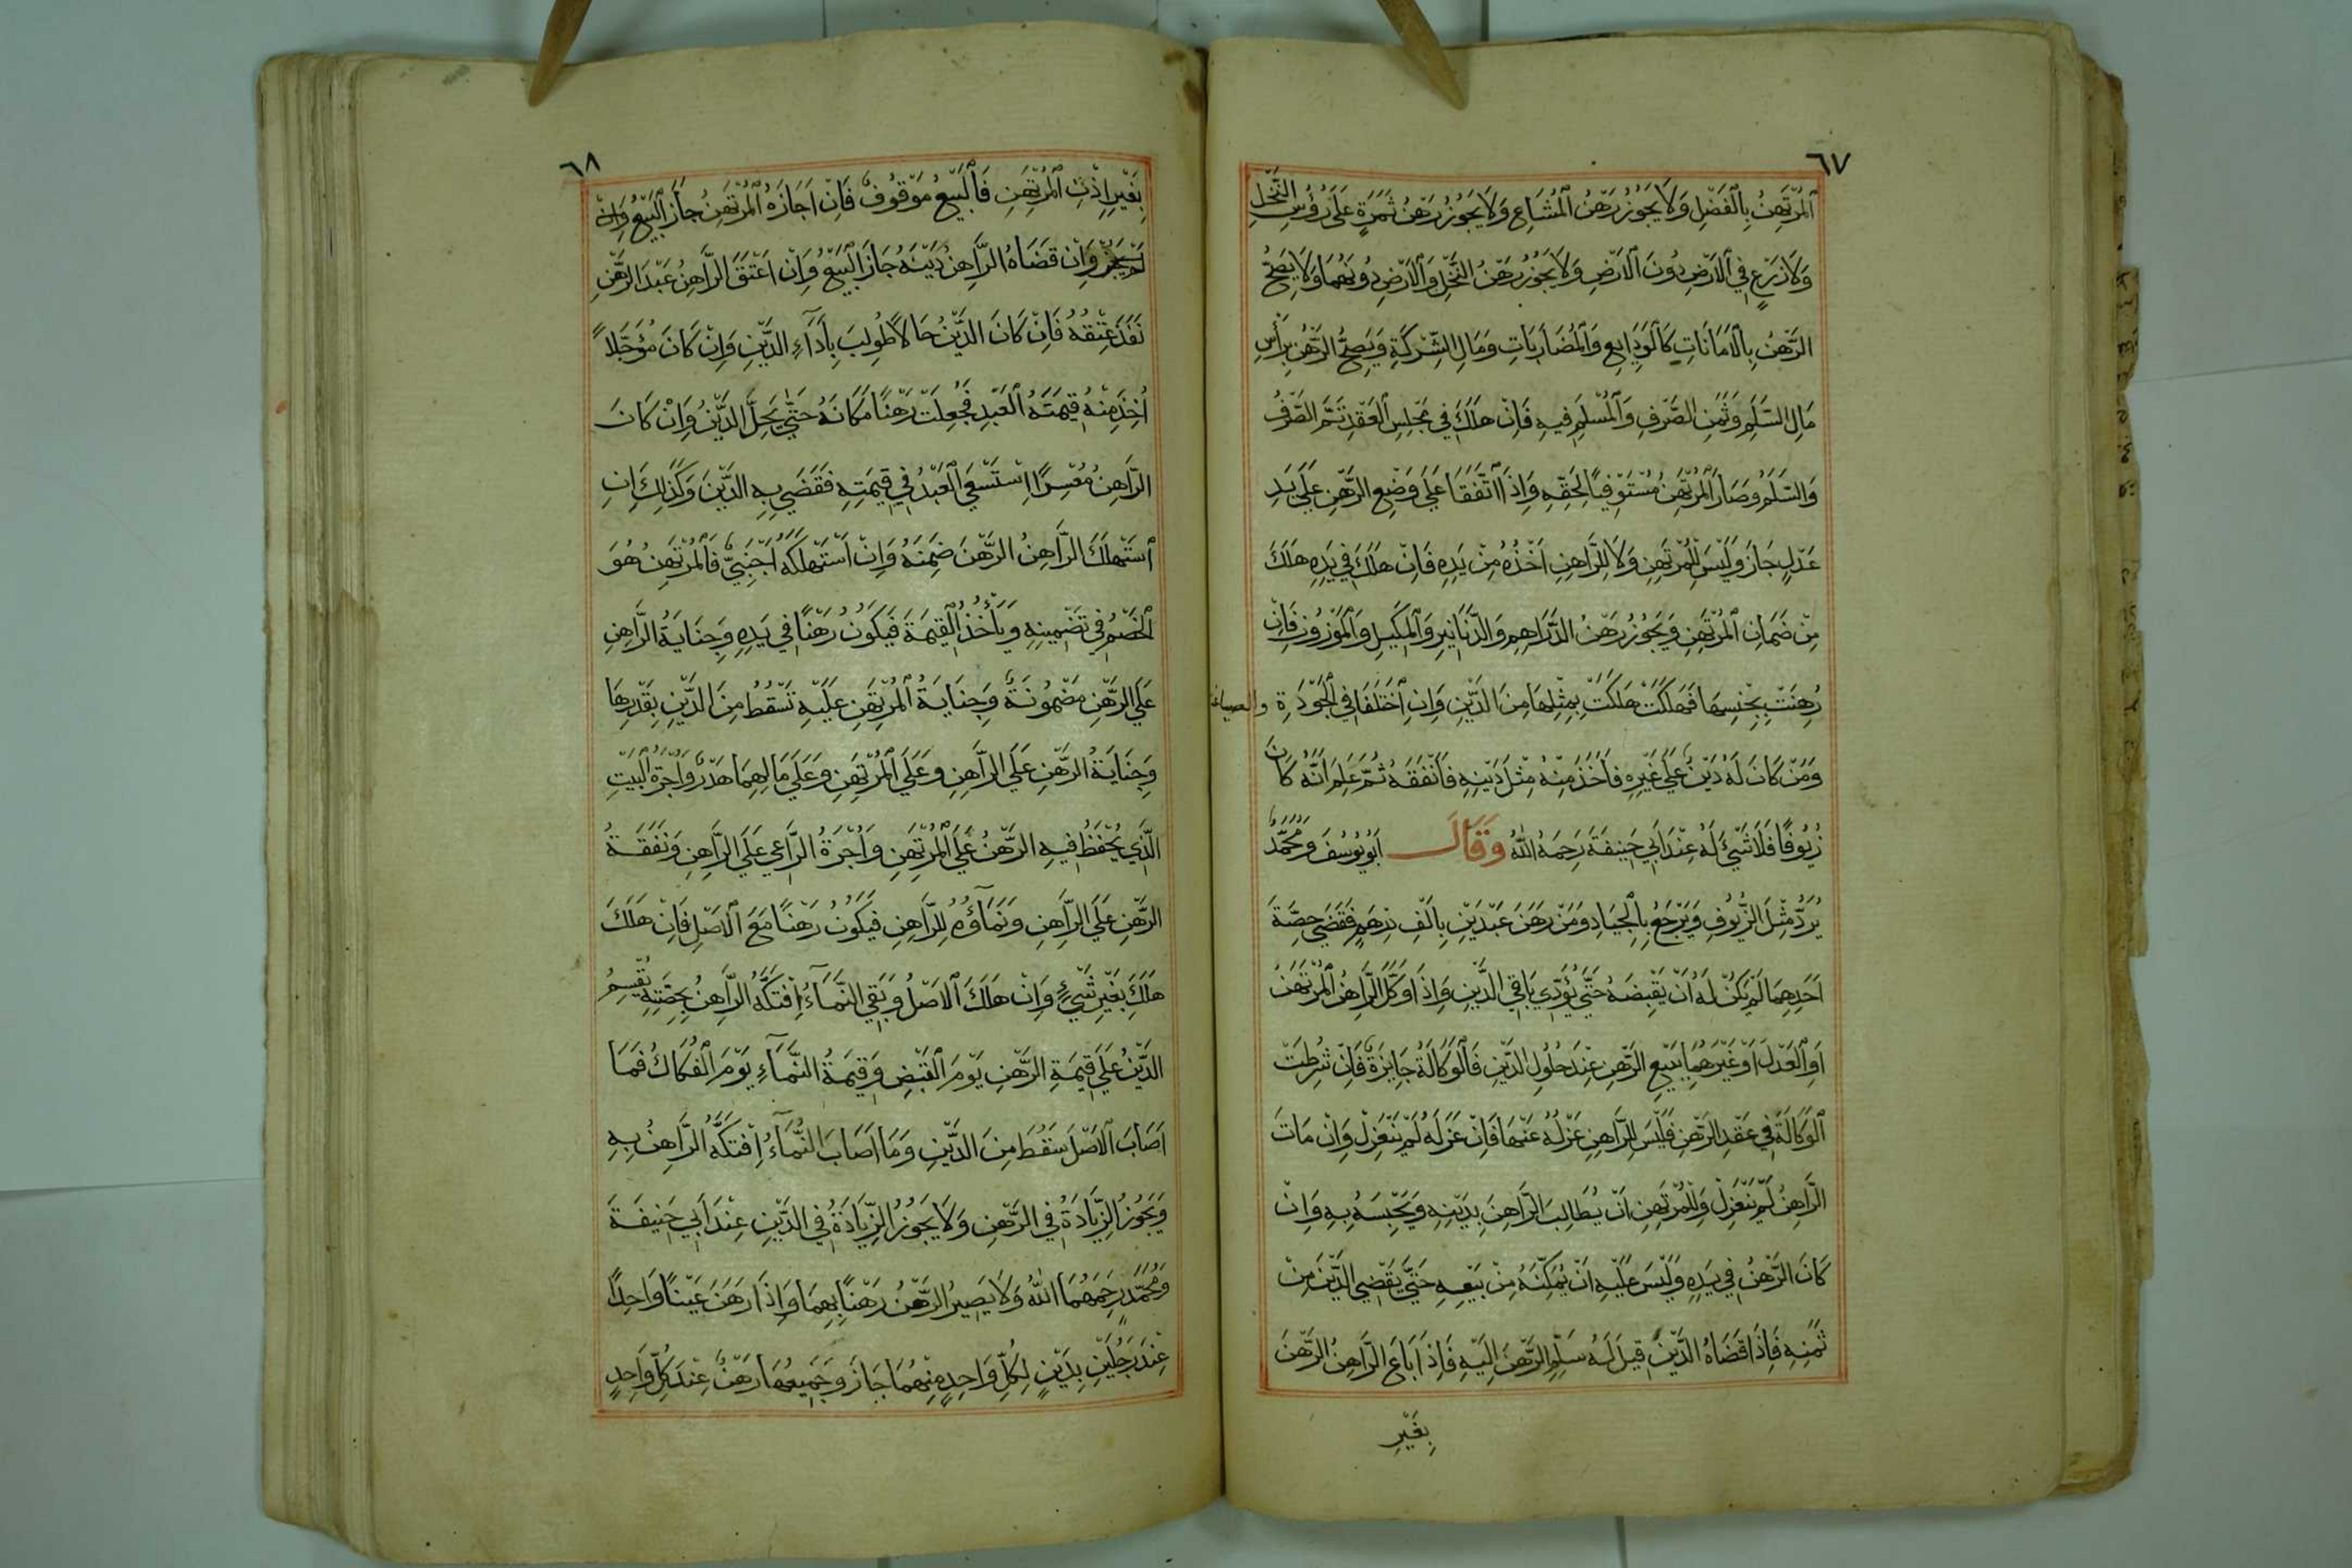 ٦٧
ٱلْمُرْتَهِنُ بِالْفَضْلِ وَلَا يَجُوزُ رَهْنُ الْمُشَاعِ وَلَا يَجُوزُ رَهْنُ ثَمَرَةٍ عَلَى رُؤُسِ النَّخْلِ
وَلَا زَرْعٍ فِي الْاَرْضِ دُونَ الْاَرْضِ وَلَا يَجُوزُ رَهْنُ النَّخْلِ وَالْاَرْضِ دُونَهُمَا وَلَا يَصِحُّ
الرَّهْنُ بِالْاَمَانَاتِ كَالْوَدَايِعِ وَالْمُضَارَبَاتِ وَمَالِ الشِّرْكَةِ وَيَصِحُّ الرَّهْنُ بِرَأْسِ
مَالِ السَّلَمِ وَثَمَنِ الصَّرْفِ وَالْمُسْلَمِ فِيهِ فَاِنْ هَلَكَ فِي مَجْلِسِ الْعَقْدِ تَمَّ الصَّرْفُ
وَالسَّلَمُ وَصَارَ الْمُرْتَهِنُ مُسْتَوْفِيًا لِحَقِّهِ وَاِذَا اتَّفَقَا عَلَى وَضْعِ الرَّهْنِ عَلَى يَدِ
عَدْلٍ جَازَ وَلَيْسَ لِلْمُرْتَهِنِ وَلَا لِلرَّاهِنِ اَخْذُهُ مِنْ يَدِهِ فَاِنْ هَلَكَ فِي يَدِهِ هَلَكَ
مِنْ ضَمَانِ الْمُرْتَهِنِ وَيَجُوزُ رَهْنُ الدَّرَاهِمِ وَالدَّنَانِيرِ وَالْمَكِيلِ وَالْمَوْزُونِ فَاِنْ
رُهِنَتْ بِجِنْسِهَا فَهَلَكَتْ هَلَكَتْ بِمِثْلِهَا مِنَ الدَّيْنِ وَاِنِ اخْتَلَفَا فِي الْجَوْدَةِ والصياغة
وَمَنْ كَانَ لَهُ دَيْنٌ عَلَى غَيْرِهِ فَاَخَذَ مِنْهُ مِثْلَ دَيْنِهِ فَاَنْفَقَهُ ثُمَّ عَلِمَ اَنَّهُ كَانَ
زُيُوفًا فَلَا شَيْءَ لَهُ عِنْدَ اَبِي حَنِيفَةَ رَحِمَهُ اللّٰهُ وَقَالَ اَبُو يُوسُفَ وَمُحَمَّدٌ
يَرُدُّ مِثْلَ الزُّيُوفِ وَيَرْجِعُ بِالْجِيَادِ وَمَنْ رَهَنَ عَبْدَيْنِ بِاَلْفِ دِرْهَمٍ فَقَضَى حِصَّةَ
اَحَدِهِمَا لَمْ يَكُنْ لَهُ اَنْ يَقْبِضَهُ حَتَّى يُؤَدِّيَ بَاقِيَ الدَّيْنِ وَاِذَا وَكَّلَ الرَّاهِنُ الْمُرْتَهِنَ
اَوِ الْعَدْلَ اَوْ غَيْرَهُمَا بِبَيْعِ الرَّهْنِ عِنْدَ حُلُولِ الدَّيْنِ فَالْوَكَالَةُ جَايِزَةٌ فَاِنْ شُرِطَتْ
الْوَكَالَةُ فِي عَقْدِ الرَّهْنِ فَلَيْسَ لِلرَّاهِنِ عَزْلُهُ عَنْهَا فَاِنْ عَزَلَهُ لَمْ يَنْعَزِلْ وَاِنْ مَاتَ
الرَّاهِنُ لَمْ يَنْعَزِلْ وَلِلْمُرْتَهِنِ اَنْ يُطَالِبَ الرَّاهِنَ بِدَيْنِهِ وَيَحْبِسَهُ بِهِ وَاِنْ
كَانَ الرَّهْنُ فِي يَدِهِ وَلَيْسَ عَلَيْهِ اَنْ يُمَكِّنَهُ مِنْ بَيْعِهِ حَتَّى يَقْضِيَ الدَّيْنَ مِنْ
ثَمَنِهِ فَاِذَا قَضَاهُ الدَّيْنَ قِيلَ لَهُ سَلِّمِ الرَّهْنَ اِلَيْهِ فَاِذَا بَاعَ الرَّاهِنُ الرَّهْنَ
بِغَيْرِ
٦٨
بِغَيْرِ اِذْنِ الْمُرْتَهِنِ فَالْبَيْعُ مَوْقُوفٌ فَاِنْ اَجَازَهُ الْمُرْتَهِنُ جَازَ الْبَيْعُ وَاِنْ
وَاِنْ قَضَاهُ الرَّاهِنُ دَيْنَهُ جَازَ الْبَيْعُ وَاِنْ اَعْتَقَ الرَّاهِنُ عَبْدَ الرَّهْنِ
نَفَذَ عِتْقُهُ فَاِنْ كَانَ الدَّيْنُ حَالًا طُولِبَ بِاَدَآءِ الدَّيْنِ وَاِنْ كَانَ مُؤَجَّلًا
اُخِذَ مِنْهُ قِيمَتَهُ الْعَبْدِ فَجُعِلَتْ رَهْنًا مَكَانَهُ حَتَّى يَحِلَّ الدَّيْنُ وَاِنْ كَانَ
الرَّاهِنُ مُعْسِرًا اِسْتَسْعَى الْعَبْدُ فِي قِيمَتِهِ فَقَضَى بِهِ الدَّيْنَ وَكَذَلِكَ اِنِ
اسْتَهْلَكَ الرَّاهِنُ الرَّهْنَ ضَمِنَهُ وَاِنْ اسْتَهْلَكَهُ اَجْنَبِيٌّ فَالْمُرْتَهِنُ هُوَ
الْخَصْمُ فِي تَضْمِينِهِ وَيَأْخُذُ الْقِيمَةَ فَيَكُونُ رَهْنًا فِي يَدِهِ وَجِنَايَةُ الرَّاهِنِ
عَلَى الرَّهْنِ مَضْمُونَةٌ وَجِنَايَةُ الْمُرْتَهِنِ عَلَيْهِ تَسْقُطُ مِنَ الدَّيْنِ بِقَدْرِهَا
وَجِنَايَةُ الرَّهْنِ عَلَى الرَّاهِنِ وَعَلَى الْمُرْتَهِنِ وَعَلَى مَالِهِمَا هَدْرٌ وَاُجْرَةُ الْبَيْتِ
الَّذِي يُحْفَظُ فِيهِ الرَّهْنُ عَلَى الْمُرْتَهِنِ وَاُجْرَةُ الرَّاعِي عَلَى الرَّاهِنِ وَنَفَقَةُ
الرَّهْنِ عَلَى الرَّاهِنِ وَنَمَآؤُهُ لِلرَّاهِنِ فَيَكُونُ رَهْنًا مَعَ الْاَصْلِ فَاِنْ هَلَكَ
هَلَكَ بِغَيْرِ شَيْءٍ وَاِنْ هَلَكَ الْاَصْلُ وَبَقِيَ النَّمَآءُ اِفْتَكَّهُ الرَّاهِنُ بِحِصَّتِهِ يُقْسَمُ
الدَّيْنُ عَلَى قِيمَةِ الرَّهْنِ يَوْمَ الْقَبْضِ وَقِيمَةُ النَّمَآءِ يَوْمَ الْفَكَاكُ فَمَا
اَصَابَ الْاَصْلَ سَقَطَ مِنَ الدَّيْنِ وَمَا اَصَابَ النَّمَآءُ اِفْتَكَّهُ الرَّاهِنُ بِهِ
وَيَجُوزُ الزِّيَادَةُ فِي الرَّهْنِ وَلَا يَجُوزُ الزِّيَادَةُ فِي الدَّيْنِ عِنْدَ اَبِي حَنِيفَةَ
وَمُحَمَّدٍ رَحِمَهُمَا اللّٰهُ وَلَا يَصِيرُ الرَّهْنُ رَهْنًا بِهِمَا وَاِذَا رَهَنَ عَيْنًا وَاحِدًا
عِنْدَ رَجُلَيْنِ بِدَيْنٍ لِكُلِّ وَاحِدٍ مِنْهُمَا جَازَ وَجَمِيعُهَا رَهْنٌ عِنْدَ كُلِّ وَاحِدٍ